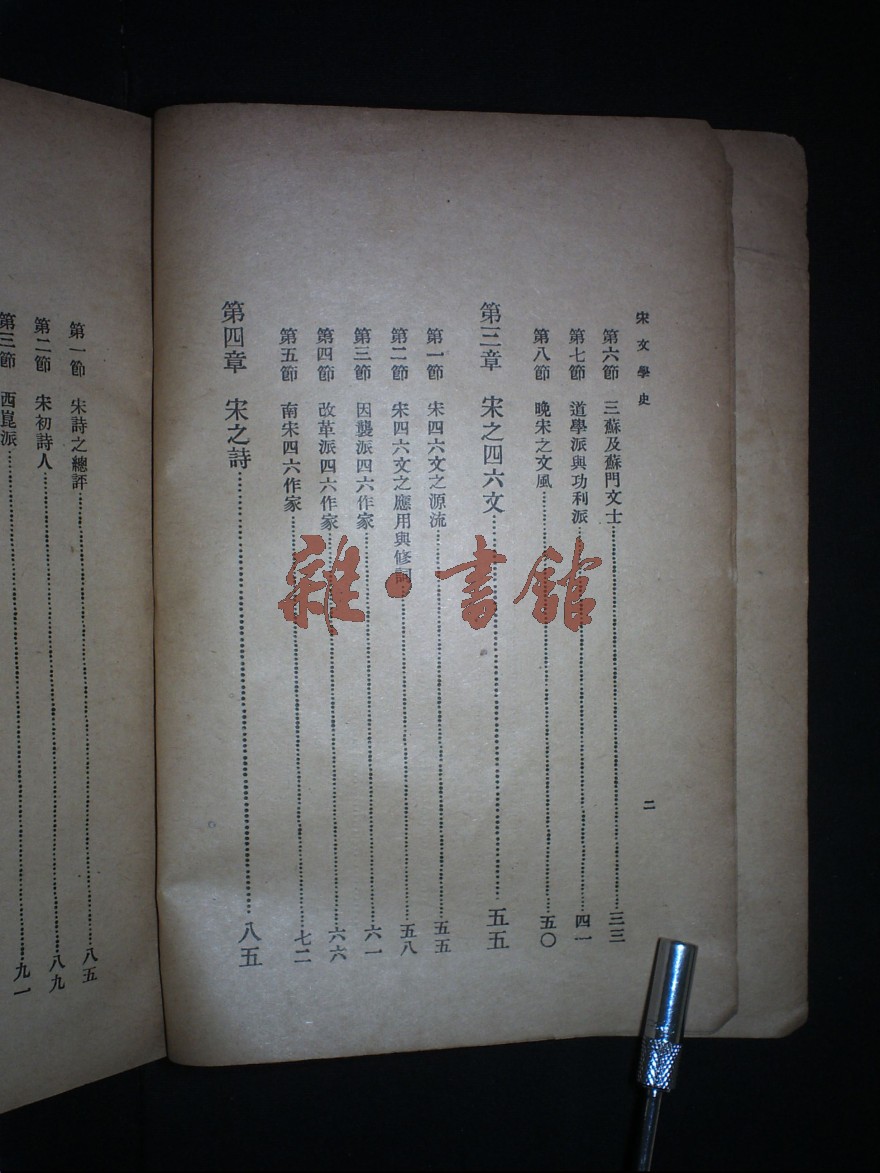 宋文學史
二
第六節 三蘇及蘇門文士……三三
第七節 道學派與功利派……四一
第八節 晚宋之文風……五〇
第三章 宋之四六文……五五
第一節 宋四六文之源流……五五
第二節 宋四六文之應用與修詞……五八
第三節 因襲派四六作家……六一
第四節 改革派四六作家……六六
第五節 南宋四六作家……七二
第四章 宋之詩……八五
第一節 宋詩之總評……八五
第二節 宋初詩人……八九
第三節 西崑派……九一
雜·書館